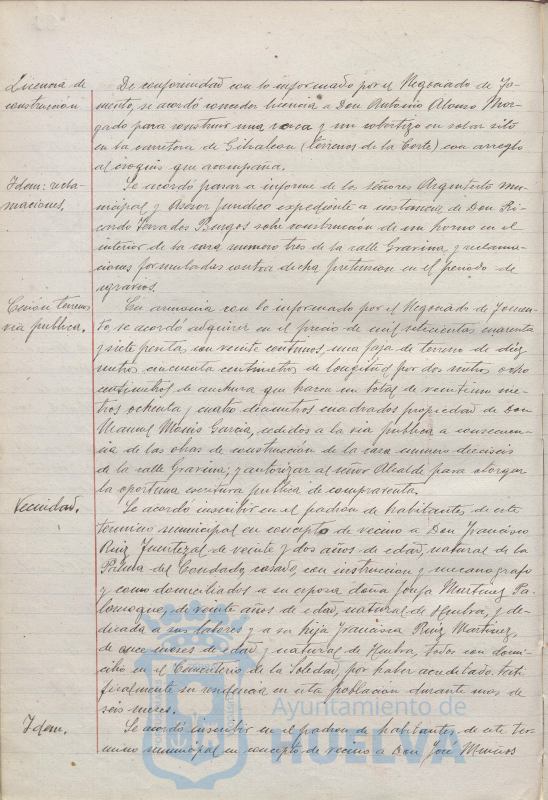 Licencia de
construcción
De conformidad con lo informado por el Negociado de Fo-
mento, se acordó conceder licencia a Don Antonio Alonso Mor-
gado para construir una casa y un cobertizo en solar sito
en la carretera de Gibraleon (terrenos de la Corte) con arreglo
al croquis que acompaña.
Idem: recla-
maciones.
Se acordó pasar a informe de los señores Arquitecto mu-
nicipal y Asesor Juridico expediente a instancia de Don Ri-
cardo Terrades Burgos sobre construccion de un horno en el
interior de la casa numero tres de la calle Gravina y reclama-
ciones formuladas contra dicha pretension en el periodo de
agravios.
Cesión terreno
via publica.
En armonia con lo informado por el Negociado de Fomen-
to se acordo adquirir en el precio de mil setecientas cuarenta
y siete pesetas con veinte centimos, una faja de terreno de diez
metros cincuenta centimetros de longitud por dos metros ocho
centimetros de anchura que hacen un total de veintiun me-
tros ochenta y cuatro decimetros cuadrados propiedad de Don
Manuel García, cedidos a la via publica a consecuen-
cia de las obras de construccion de la casa numero dieciseis
de la calle Gravina; y autorizar al señor Alcalde para otorgar
la oportuna escritura publica de compraventa.
Vecindad.
Se acordó inscribir en el padrón de habitantes de este
termino municipal en concepto de vecino a Don Francisco
Ruiz de veinte y dos años de edad, natural de la
Palma del Condado, casado, con instruccion y mecanografo
y como domiciliados a su esposa doña Josefa Martinez Pa-
lomeque, de veinte años de edad, natural de Huelva, y de-
dicada a sus labores y a su hija Francisca Ruiz Martinez,
de once meses de edad y natural de Huelva, todos con domi-
cilio en el Cementerio de la Soledad, por haber acreditado testi-
ficalmente su residencia en esta población durante mas de
seis meses.
Idem.
Se acordó inscribir en el padron de habitantes de este ter-
mino municipal en concepto de vecino a Don José
Ayuntamiento de
HUELVA